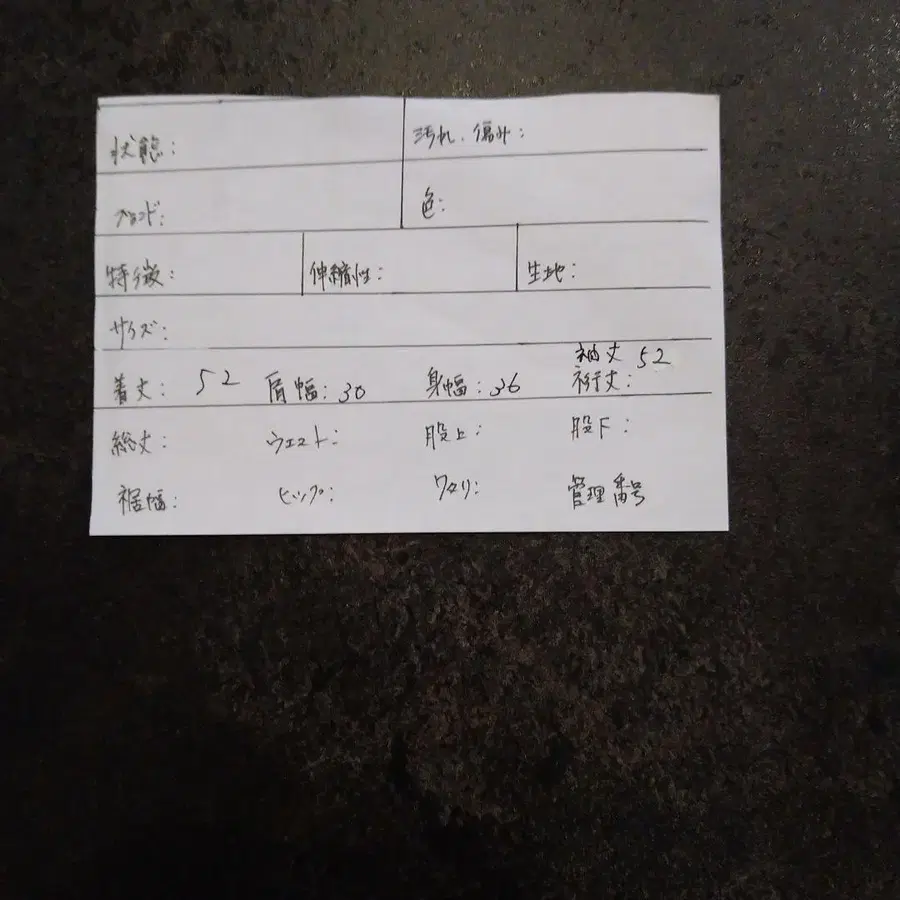 状態： 汚れ、傷み：
ブランド： 色：
特徴： 伸縮性： 生地：
サイズ：
袖丈 52
着丈： 52 肩幅：30 身幅：36 裄丈：
総丈： ウエスト： 股上： 股下：
裾幅： ヒップ： ワタリ： 管理番号